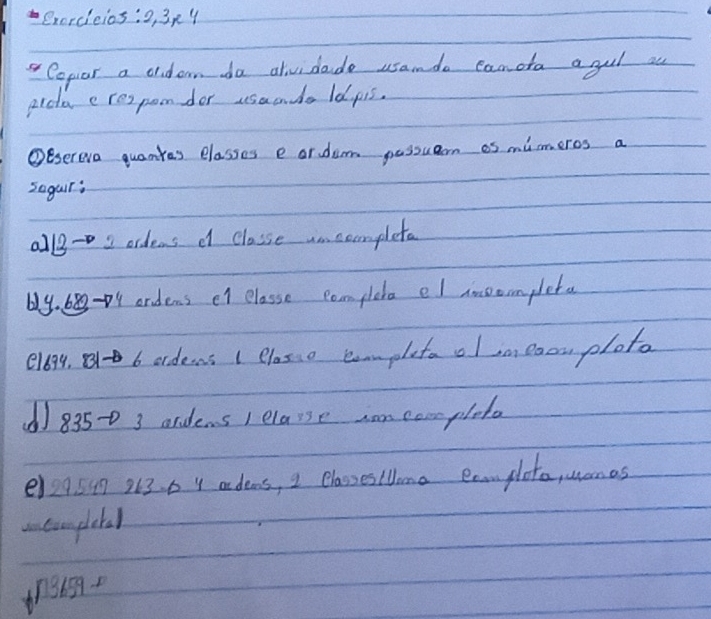 * Exercícios: 2, 3 e 4
* Copiar a ordem da atividade usando caneta azul ou
preta e responder usando lápis.
① Escreva quantas classes e ordem possuem os números a
seguir:
a) 12 → 2 ordens e 1 classe incompleta
b) 4.682 → 4 ordens e 1 classe completa e 1 incompleta
c) 694.831 → 6 ordens 1 classe completa e 1 incompleta
d) 835 → 3 ordens 1 classe incompleta
e) 29.549 263 → 4 ordens, 2 classes (Uma completa,
incompleta)
f) 13659 →